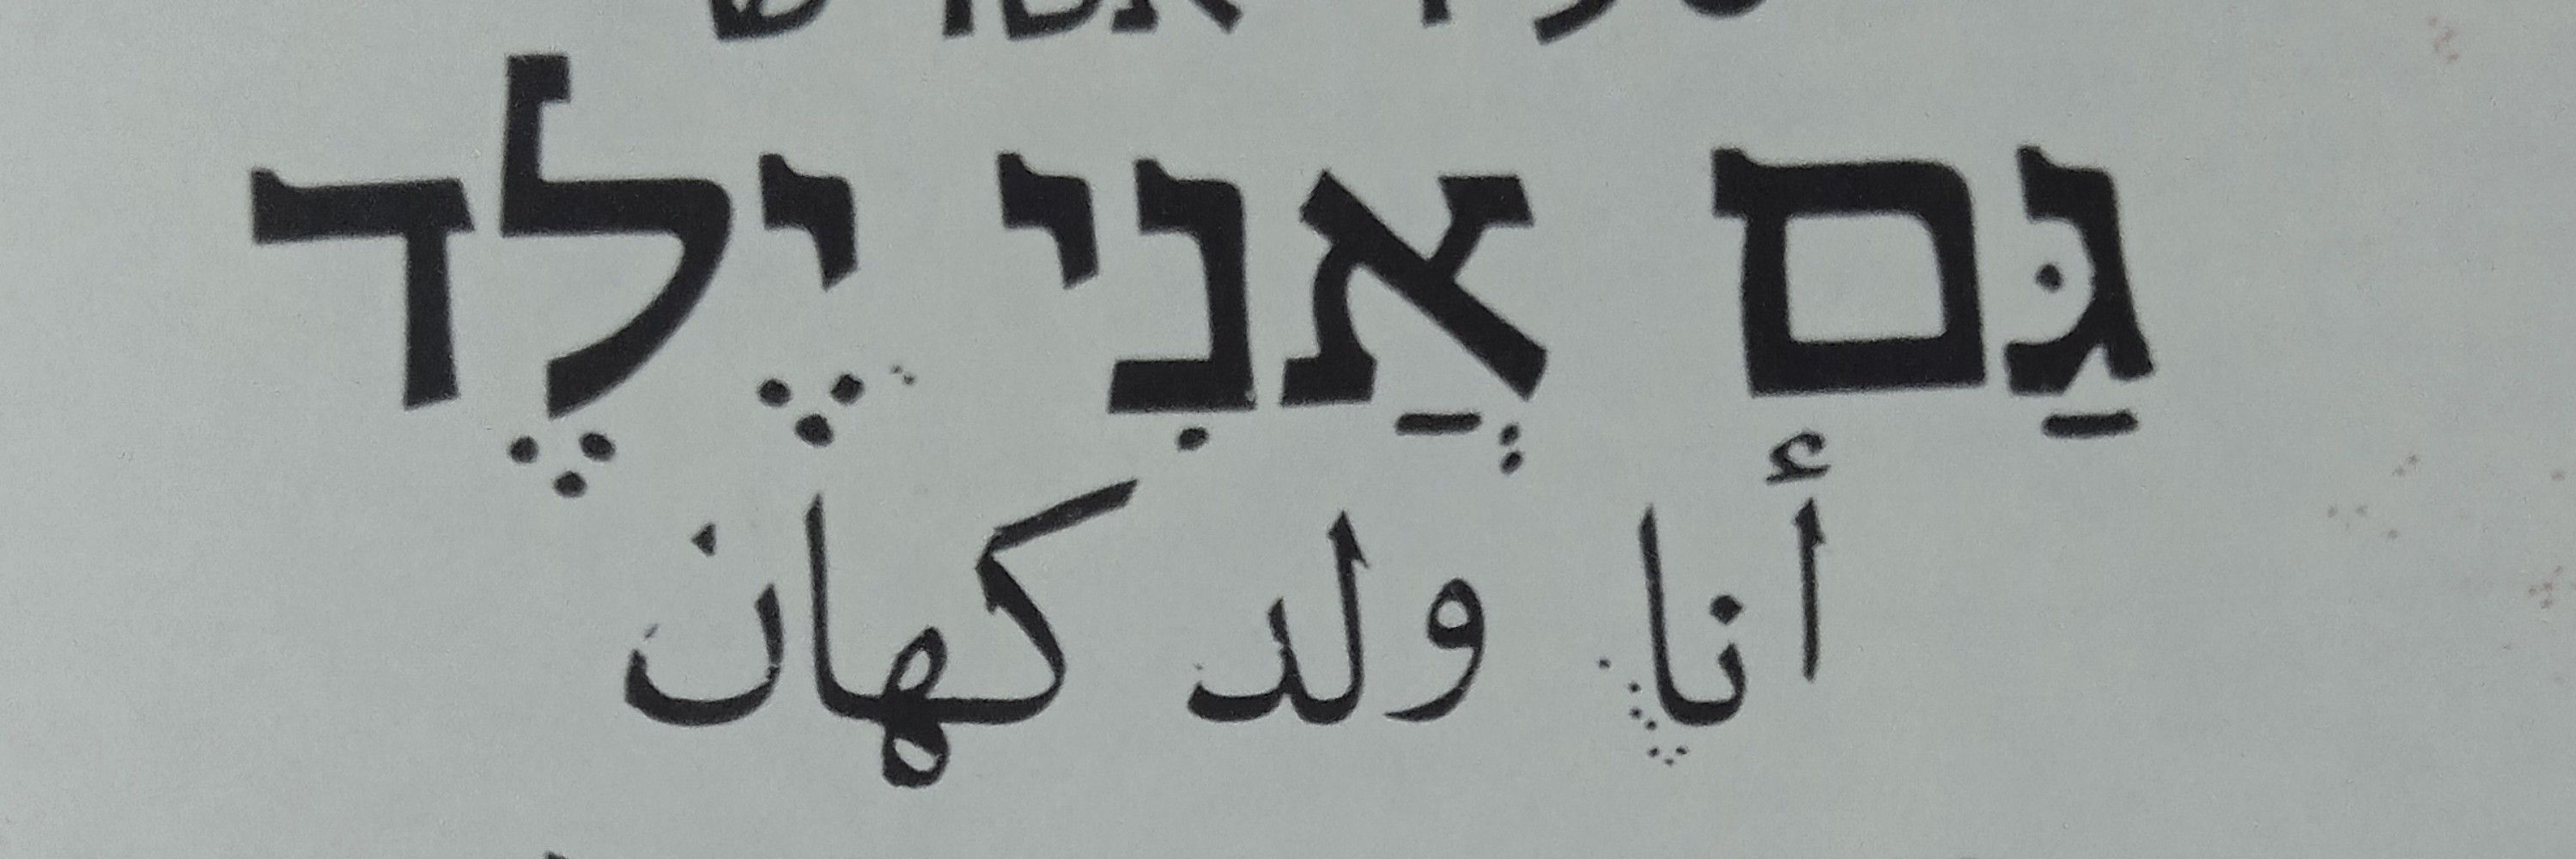 גַּם אֲנִי יֶלֶד
أنا ولد كهان